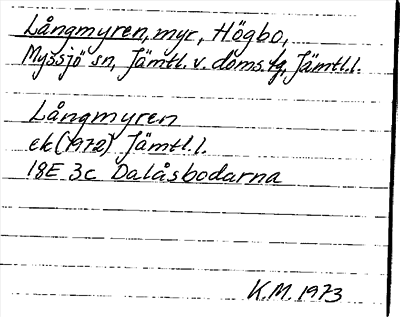 Långmyren, myr, Högbo,
Myssjö sn, Jämtl. v. doms.tg, Jämtl.l.
Långmyren
ek (1972) Jämtl.l.
18E 3c Dalåsbodarna
K.M. 1973